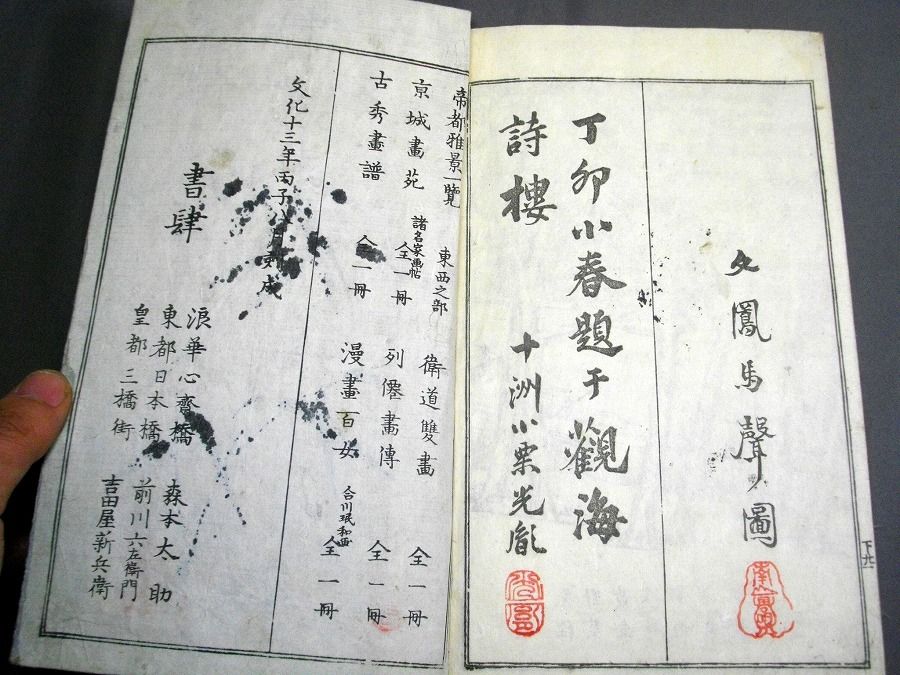 文鳳馬聲圖
丁卯小春題于觀海
詩樓
十洲小栗光胤
下廿
帝都雅景一覧 東西之部
偉道雙畫 全一冊
京城畫苑 諸名家画帖 全一冊
列僊畫傳 全一冊
古秀畫譜 全一冊
漫畫百女 合川珉和画 全一冊
文化十三年丙子八月刻成
書肆
浪華心齋橋 森本太助
東都日本橋 前川六左衛門
皇都三橋街 吉田屋新兵衛